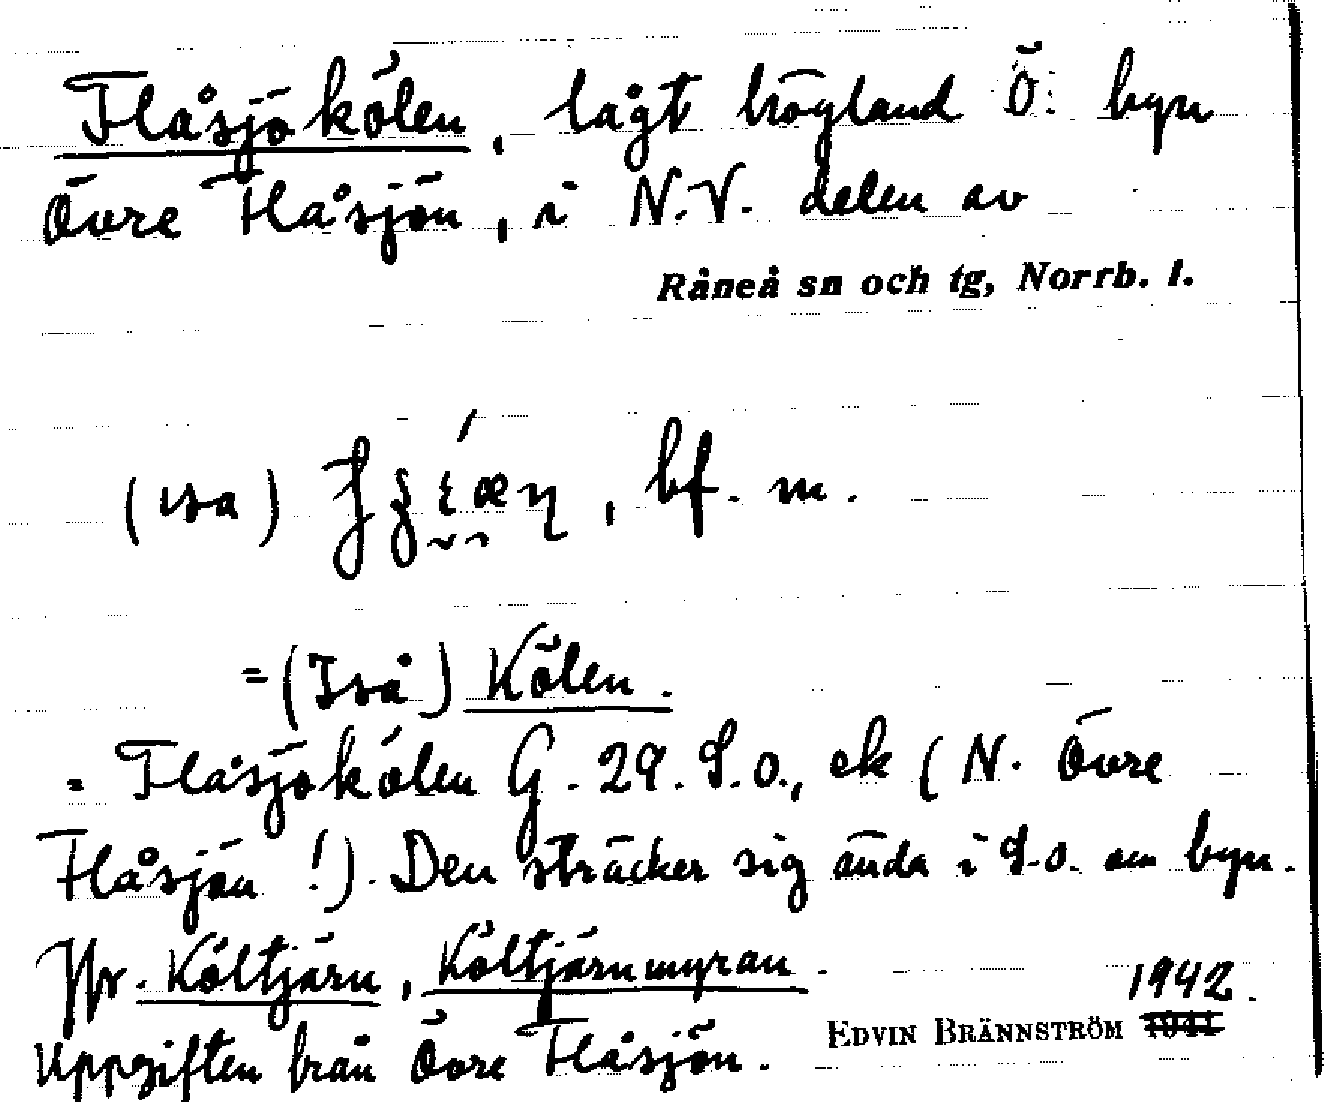 Flåsjökölen, lågt högland Ö. byn
Övre Flåsjön, i N.V. delen av
Råneå sn och tg, Norrb. l.
bf. m.
= (Iså) Kölen.
= Flåsjökölen G. 29. S.o., ek (N. Övre
Flåsjön !). Den sträcker sig ända i S.o. om byn.
Jfr. Költjärn, Költjärnmyran.
1942.
EDVIN BRÄNNSTRÖM 1941
Uppgiften från Övre Flåsjön.